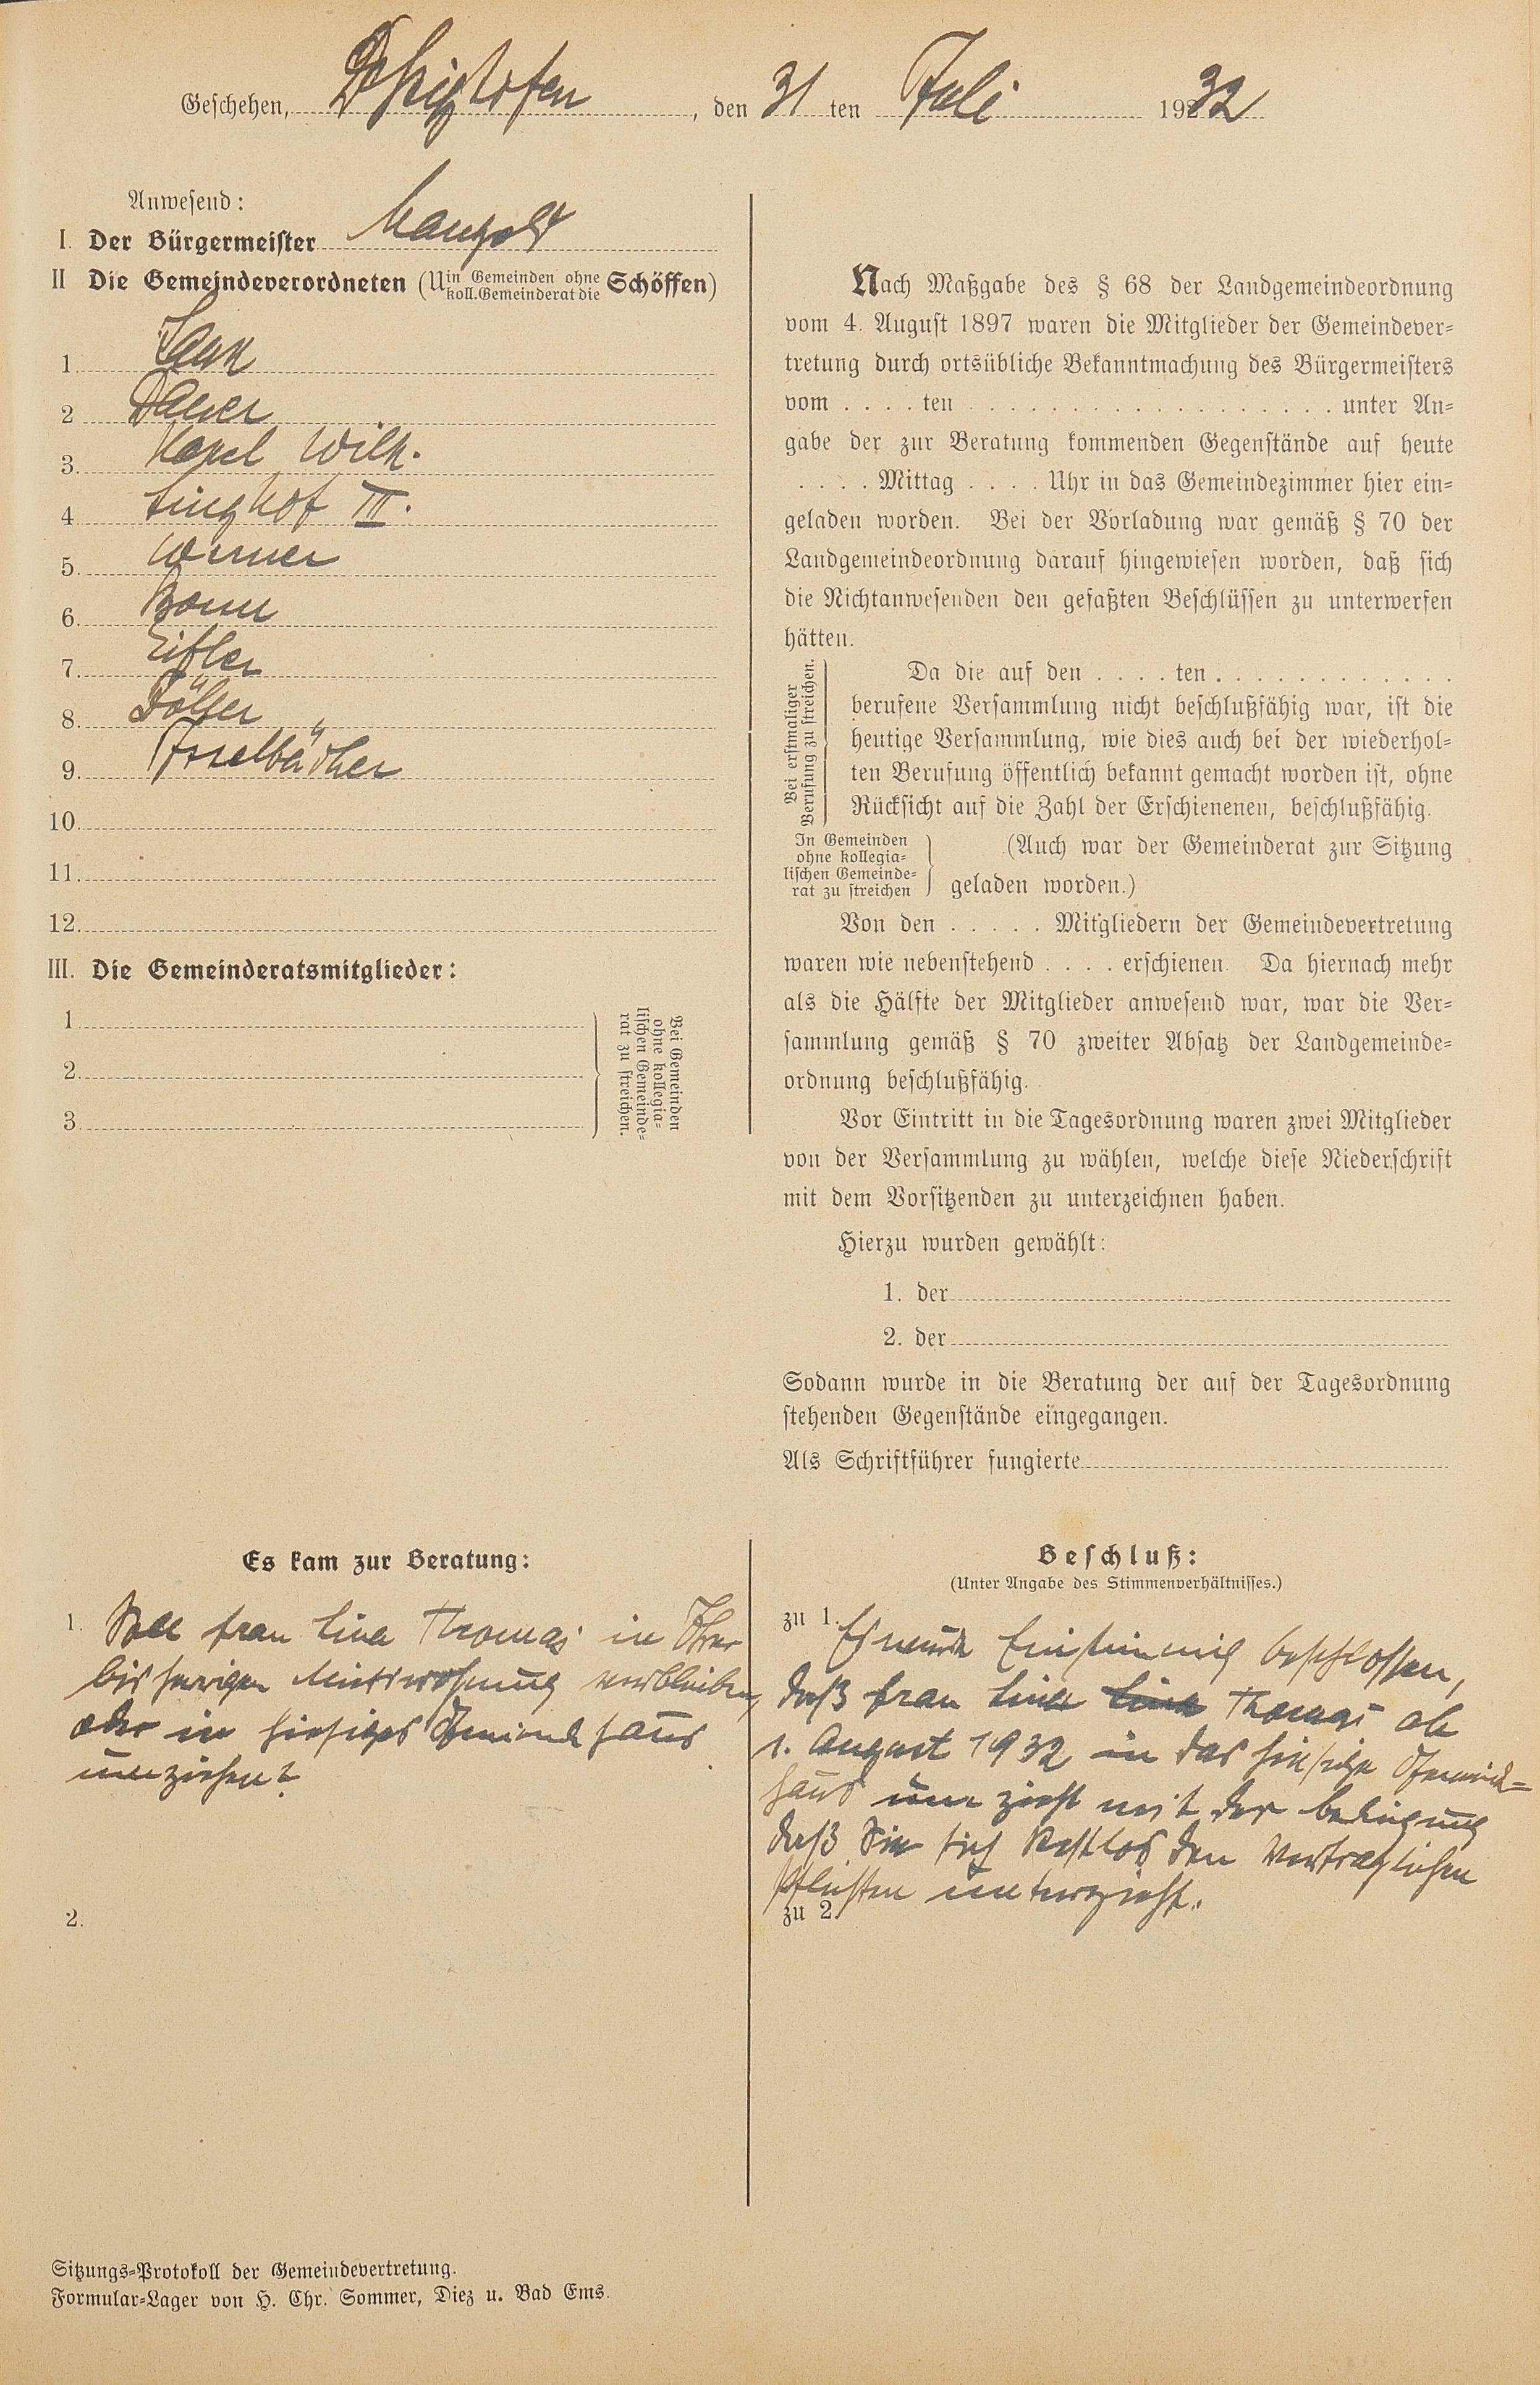 Geschehen, Dessighofen, den 31 ten Juli 1932
Anwesend:
I. Der Bürgermeister Mangold
II Die Gemeindeverordneten (U in Gemeinden ohne koll. Gemeinderat die Schöffen)
1.
2 Dauer
3. Karl Wilh.
4 Linghof III.
5. Werner
6. Bonn
7. Eifler
8. Föller
9. Isselbächer
10.
11.
12.
III. Die Gemeinderatsmitglieder:
1
2.
3.
Bei Gemeinden
ohne kollegia-
lischen Gemeinde-
rat zu streichen.
Nach Maßgabe des § 68 der Landgemeindeordnung
vom 4. August 1897 waren die Mitglieder der Gemeindever-
tretung durch ortsübliche Bekanntmachung des Bürgermeisters
vom . . . . ten . . . . . . . . . . . . . . . . . . unter An-
gabe der zur Beratung kommenden Gegenstände auf heute
. . . . Mittag . . . . Uhr in das Gemeindezimmer hier ein-
geladen worden. Bei der Vorladung war gemäß § 70 der
Landgemeindeordnung darauf hingewiesen worden, daß sich
die Nichtanwesenden den gefaßten Beschlüssen zu unterwerfen
hätten.
Bei erstmaliger
Berufung zu streichen.
Da die auf den . . . . ten . . . . . . . . . . . .
berufene Versammlung nicht beschlußfähig war, ist die
heutige Versammlung, wie dies auch bei der wiederhol-
ten Berufung öffentlich bekannt gemacht worden ist, ohne
Rücksicht auf die Zahl der Erschienenen, beschlußfähig.
In Gemeinden
ohne kollegia-
lischen Gemeinde-
rat zu streichen
(Auch war der Gemeinderat zur Sitzung
geladen worden.)
Von den . . . . . Mitgliedern der Gemeindevertretung
waren wie nebenstehend . . . . erschienen. Da hiernach mehr
als die Hälfte der Mitglieder anwesend war, war die Ver-
sammlung gemäß § 70 zweiter Absatz der Landgemeinde-
ordnung beschlußfähig.
Vor Eintritt in die Tagesordnung waren zwei Mitglieder
von der Versammlung zu wählen, welche diese Niederschrift
mit dem Vorsitzenden zu unterzeichnen haben.
Hierzu wurden gewählt:
1. der
2. der
Sodann wurde in die Beratung der auf der Tagesordnung
stehenden Gegenstände eingegangen.
Als Schriftführer fungierte
Es kam zur Beratung:
1. Soll Frau Lina Thomas in Ihrer
bisherigen Mietswohnung verbleiben,
oder in hiesiges Gemeindehaus
umziehen?
2.
Beschluß:
(Unter Angabe des Stimmenverhältnisses.)
zu 1. Es wurde Einstimmig beschlossen,
daß Frau Lina Lina Thomas ab
1. August 1932 in das hiesige Gemeinde-
haus um zieht mit der bedingung
daß Sie sich Restlos den Vertraglichen
Pflichten unterzieht.
zu 2.
Sitzungs-Protokoll der Gemeindevertretung.
Formular-Lager von H. Chr. Sommer, Diez u. Bad Ems.